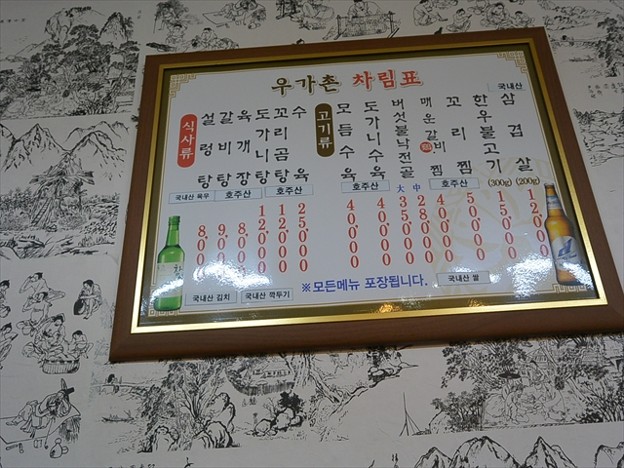 우가촌 차림표
식사류
설렁탕 8.000
갈비탕 9.000
육개장 8.000
도가니탕 12.000
꼬리곰탕 12.000
수육 25.000
고기류
모듬수육 40.000
도가니수육 40.000
버섯불낙전골 大 35.000 中 28.000
매운갈비찜 40.000
꼬리찜 50.000
한우불고기 (300g) 15.000
삼겹살 (200g) 12.000
국내산
국내산 육우
호주산
호주산
호주산
호주산
※모든메뉴 포장됩니다.
국내산 쌀
국내산 김치
국내산 깍두기